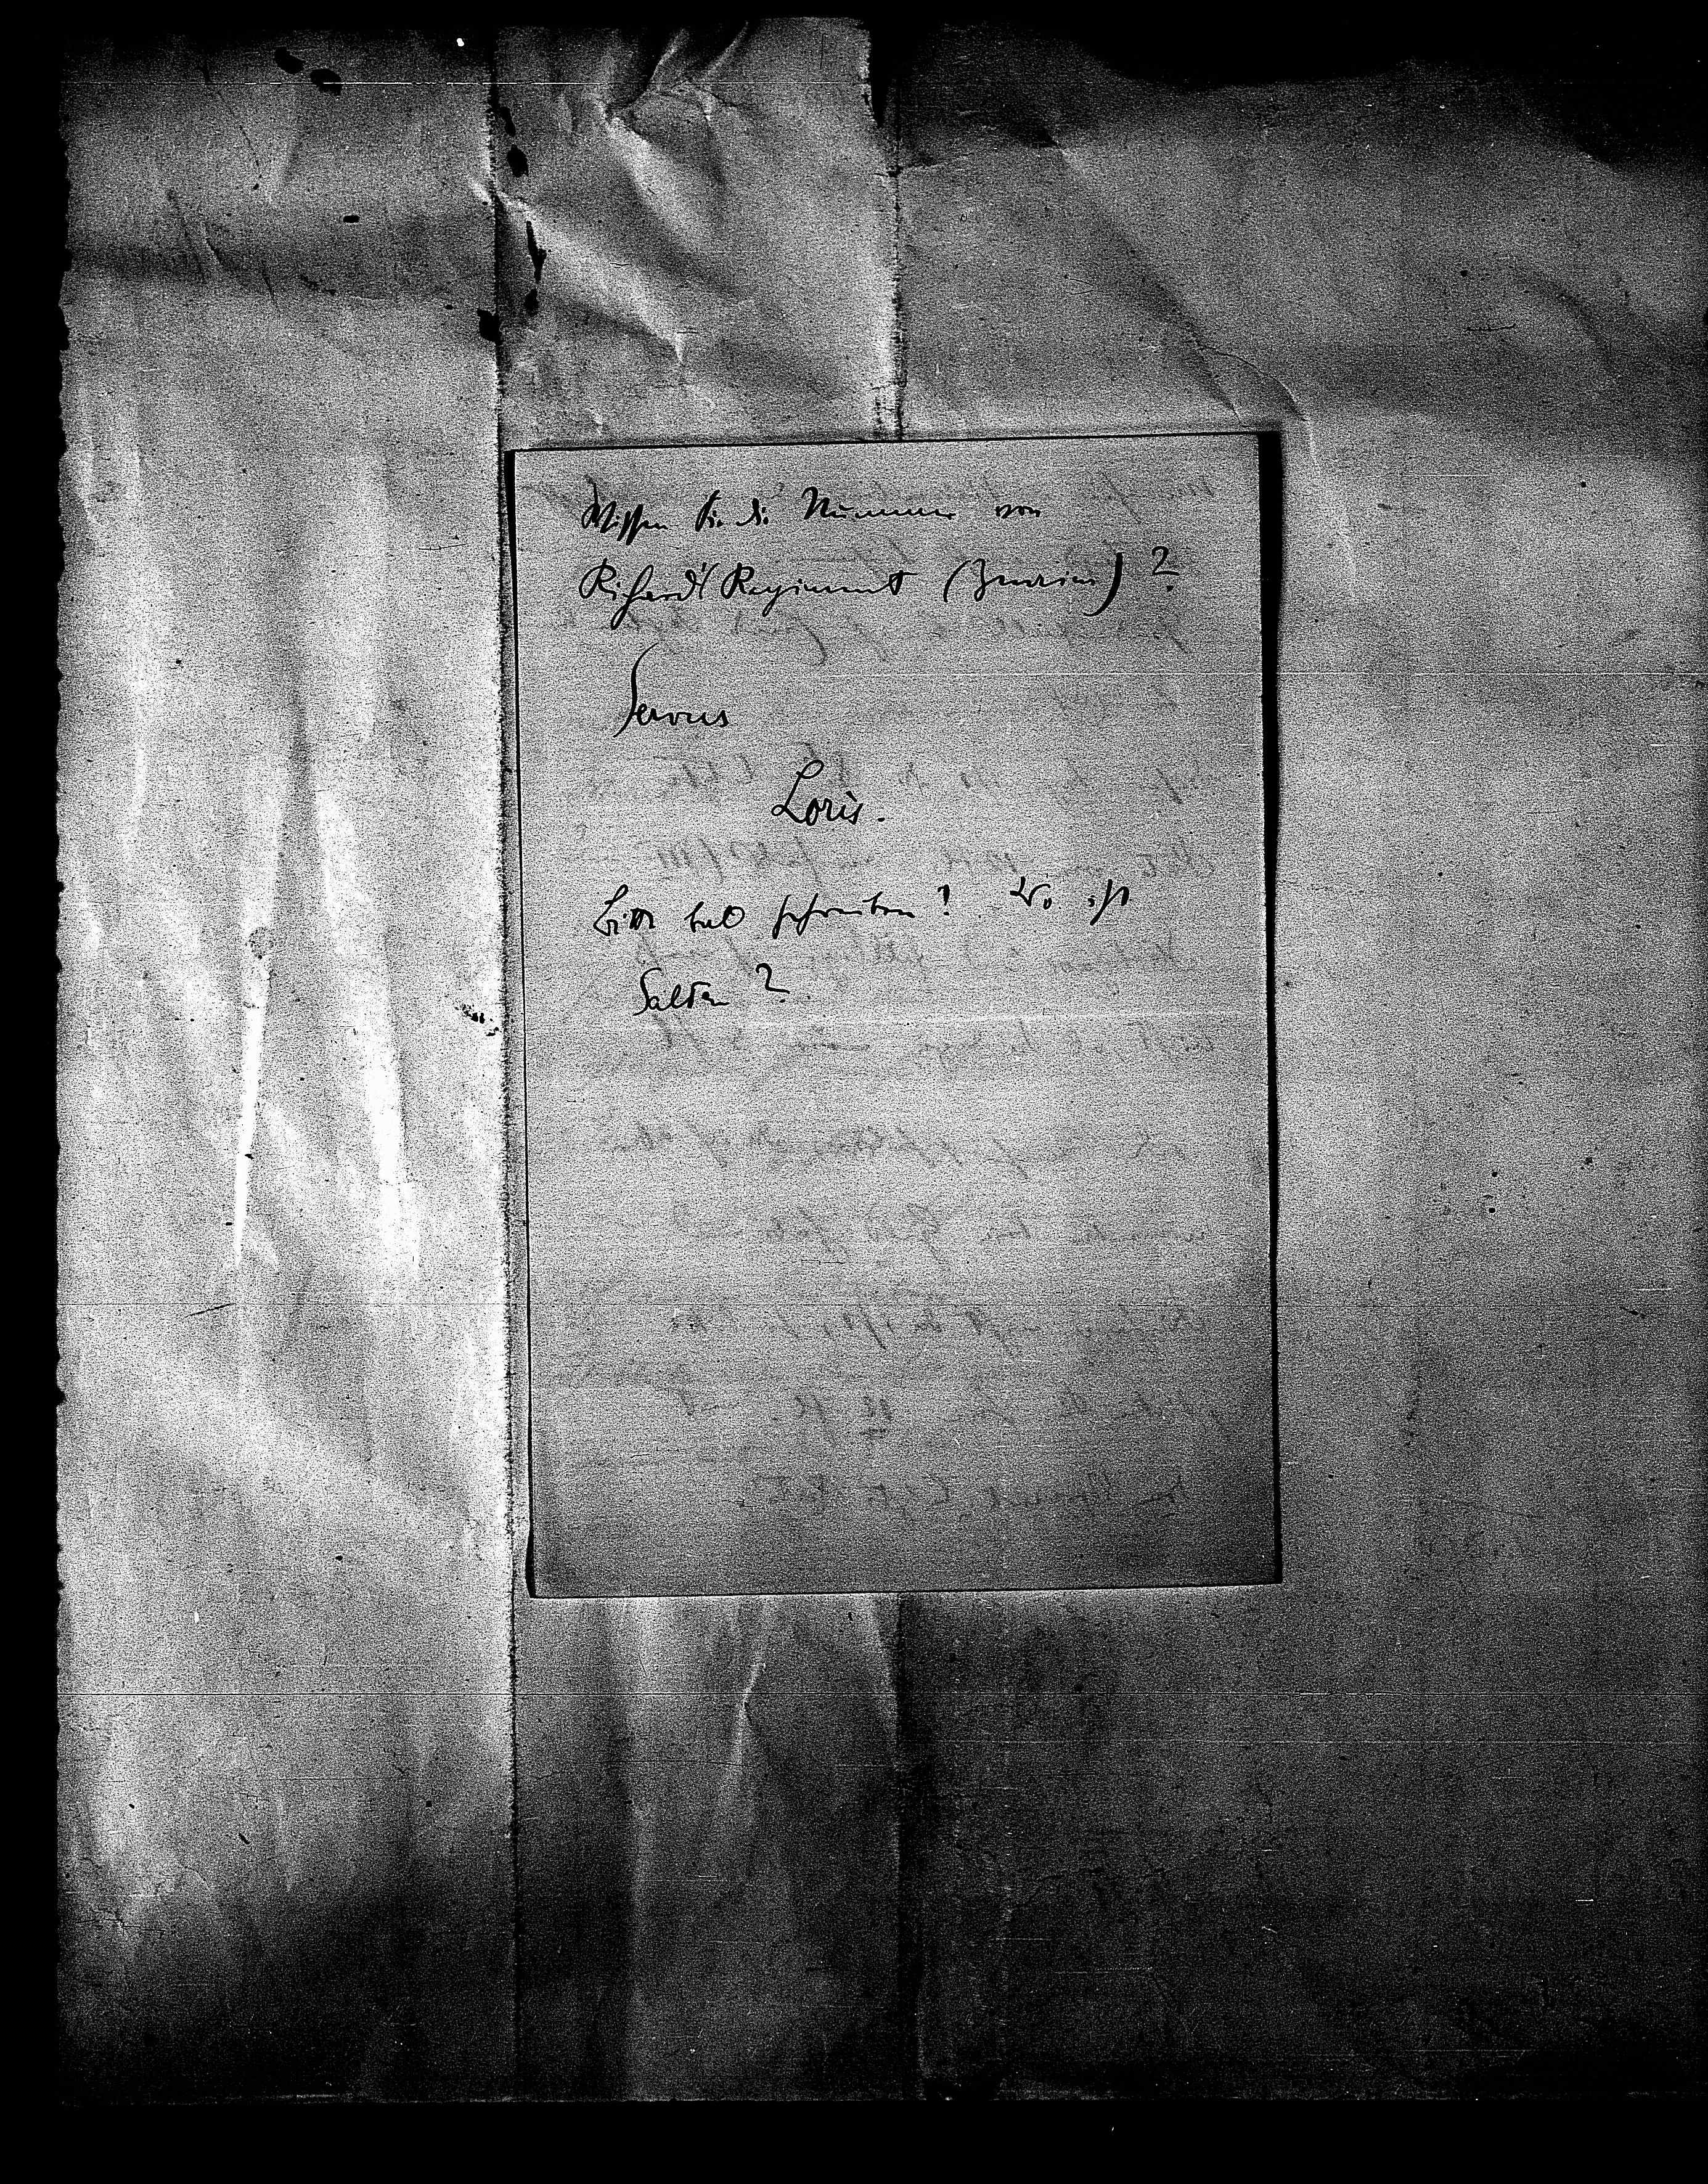 Wissen Sie die Nummer von
Richards Regiment (Znaim)?
Servus
Loris.
Bitte bald schreiben! Wo ist
Salten?